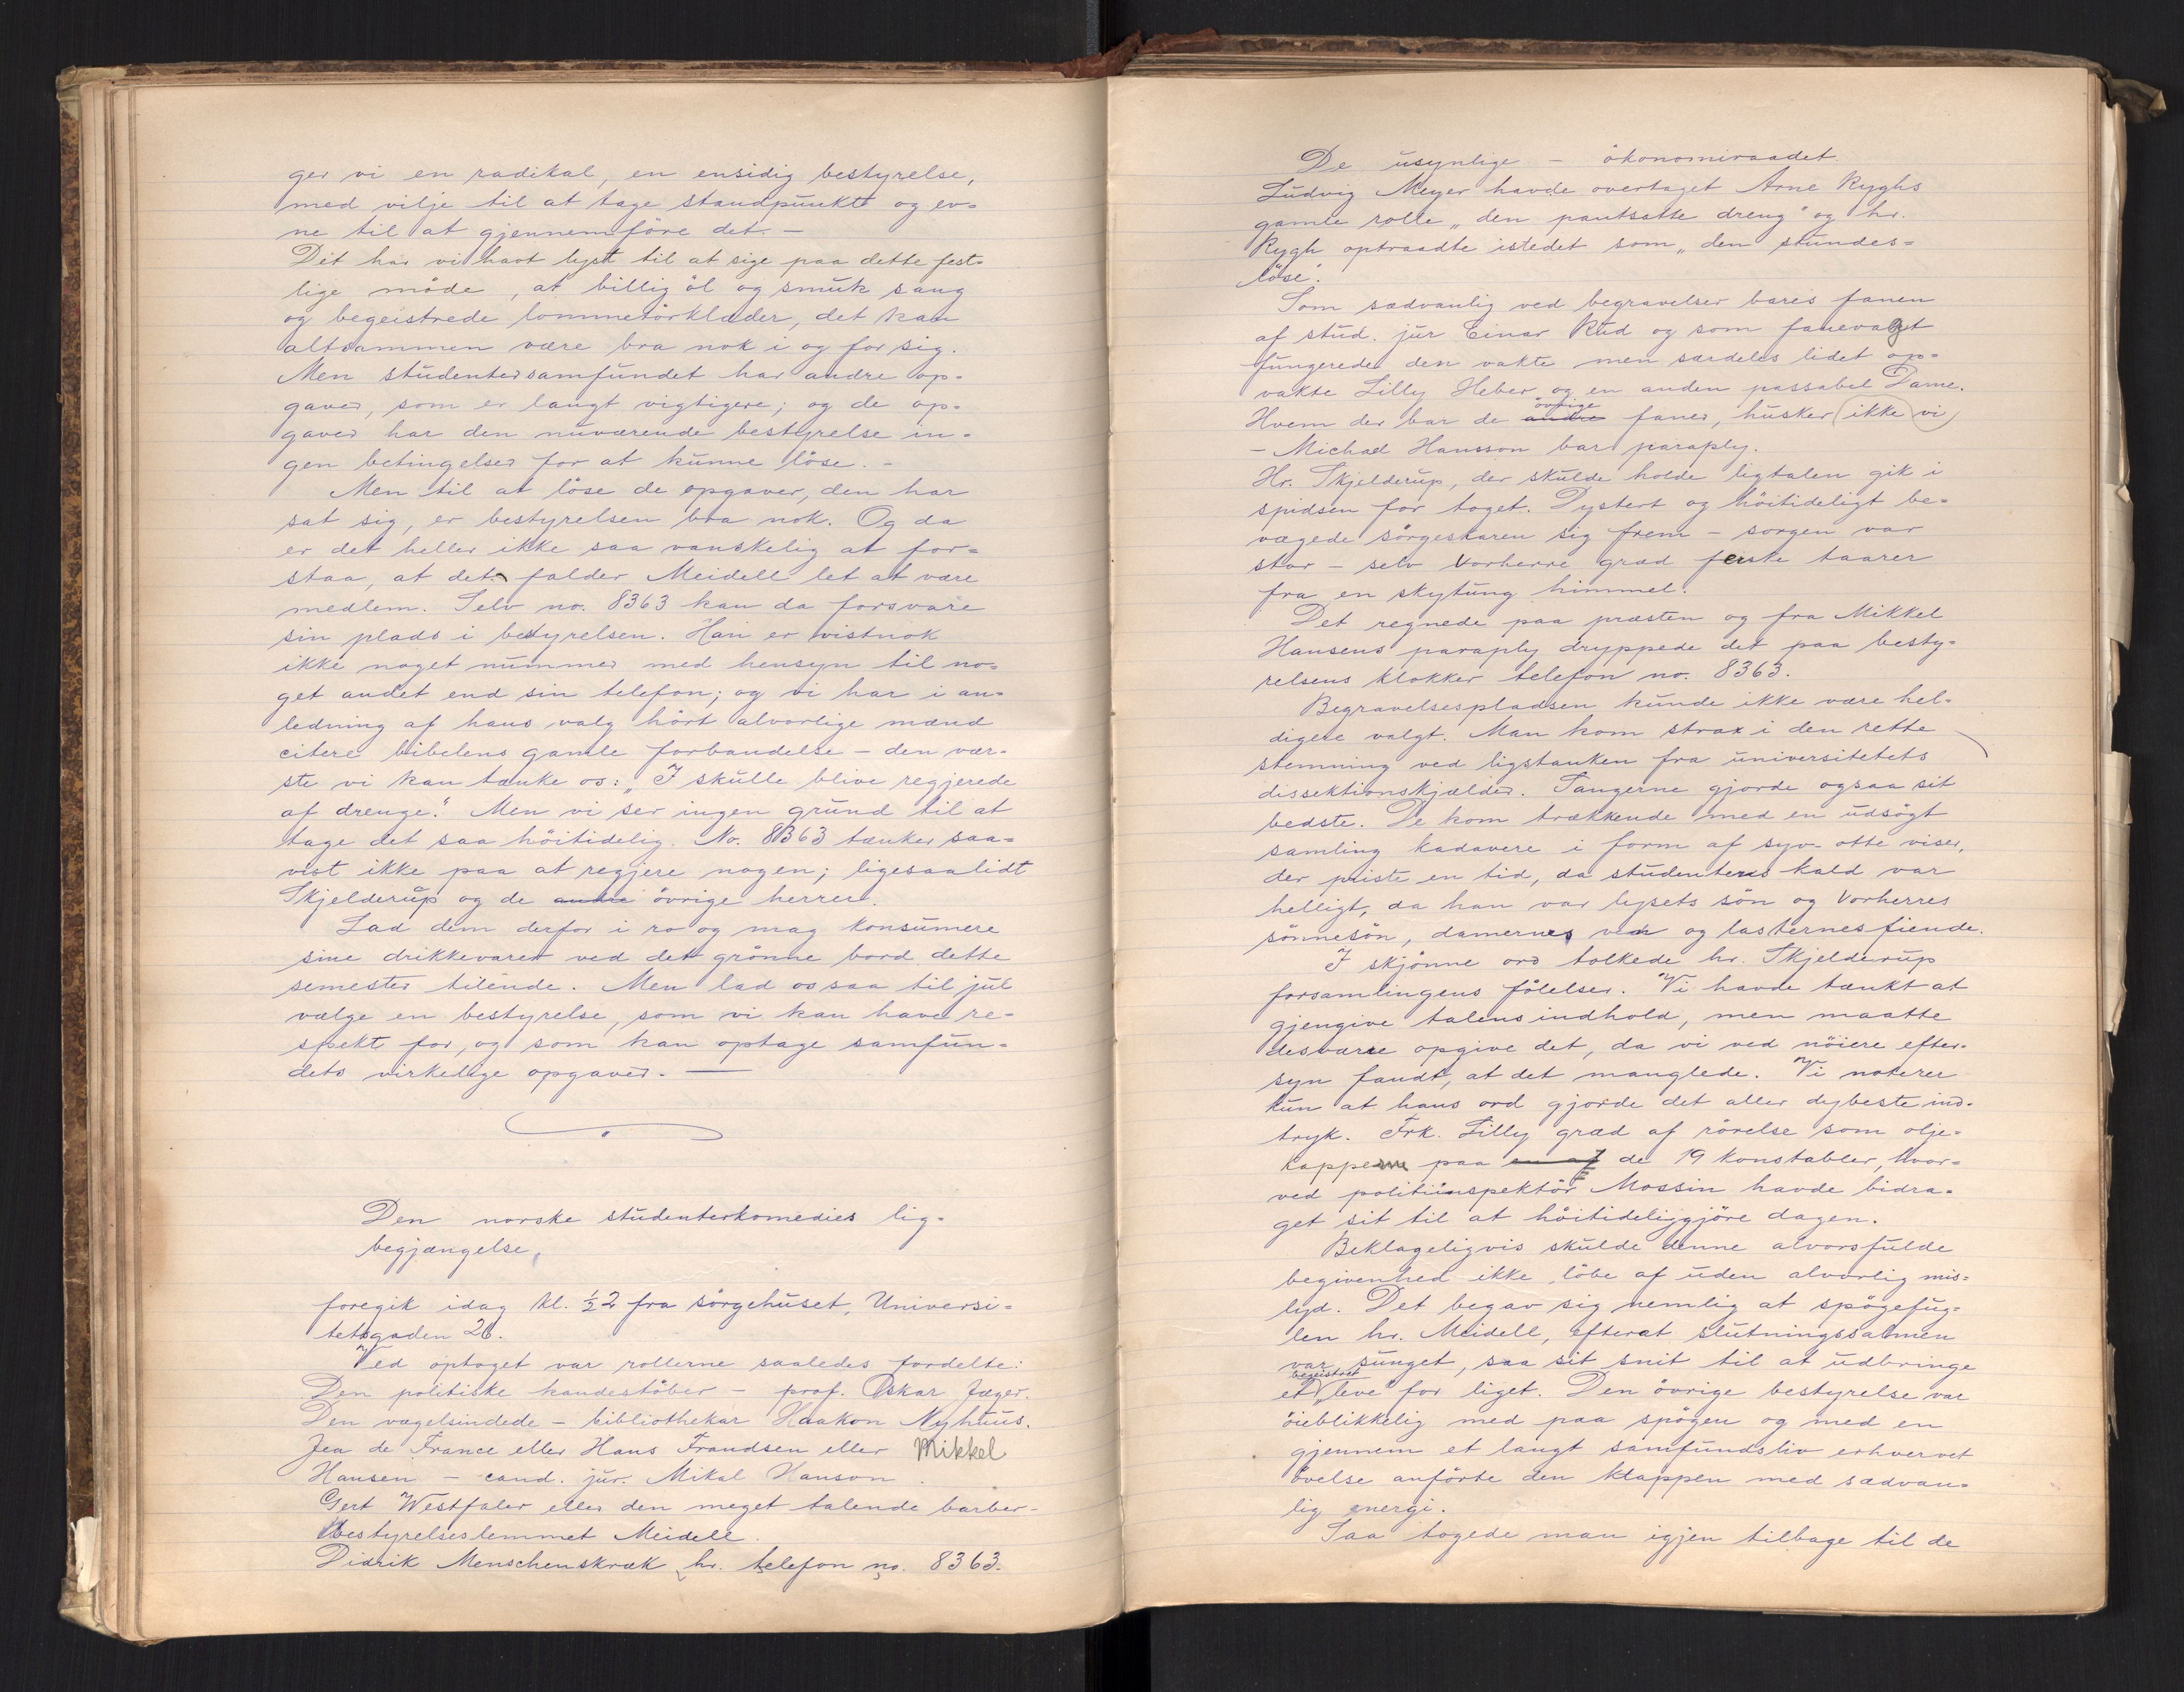 ger vi en radikal, en ensidig bestyrelse,
med vilje til at tage standpunkt og ev=
ne til at gjennemföre det. –
Det har vi havt lyst til at sige paa dette fest-
lige möde, at billig öl og smuk sang
og begeistrede lommetörklæder, det kan
altsammen være bra nok i og for sig.
Men studentersamfundet har andre op-
gaver, som er langt vigtigere; og de op-
gaver har den nuværende bestyrelse in-
gen betingelser for at kunne löse. –
Men til at löse de opgaver, den har
sat sig, er bestyrelsen bra nok. Og da
er det heller ikke saa vanskelig at for=
staa, at det falder Meidell let at være
medlem. Selv no. 8363 kan da forsvare
sin plads i bestyrelsen. Han er vistnok
ikke noget nummer med hensyn til no-
get andet end sin telefon; og vi har i an-
ledning af hans valg hört alvorlige mænd
citere bibelens gamle forbandelse – den vær-
ste vi kan tænke os: „I skulle blive regjerede
af drenge." Men vi ser ingen grund til at
tage det saa höitidelig. No. 8363 tænker saa=
vist ikke paa at regjere nogen; ligesaalidt
Skjelderup og de andre övrige herrer.
Lad dem derfor i ro og mag konsumere
sine drikkevarer ved det grönne bord dette
semester tilende. Men lad os saa til jul
vælge en bestyrelse, som vi kan have re-
spekt for, og som kan optage samfun=
dets virkelige opgaver. —
Den norske studenterkomedies lig-
begjængelse,
foregik idag kl. ½2 fra sörgehuset, Universi=
tetsgaden 26.
Ved optoget var rollerne saaledes fordelte:
Den politiske kandestöber – prof. Oskar Jæger.
Den vægelsindede – bibliothekar Haakon Nyhuus.
Jea de France eller Hans Frandsen eller Mikkel
Hansen – cand. jur. Mikal Hanson.
Gert Westfaler eller den meget talende barber-
bestyrelseslemmet Meidell.
Didrik Menschenskræk hr. telefon no. 8363.
De usynlige – ökonomiraadet.
Ludvig Meyer havde overtaget Arne Ryghs
gamle rolle „den pantsatte dreng" og hr.
Rygh optraadte istedet som „den stundes=
löse".
Som sædvanlig ved begravelser bares fanen
af stud. jur Einar Rud og som fanevagt
fungerede den vakte men særdeles lidet op=
vakte Lilly Heber og en anden passabel Dame.
Hvem der bar de andre övrige faner, husker ikke vi
– Michael Hansson bar paraply.
Hr. Skjelderup, der skulde holde ligtalen gik i
spidsen for toget. Dystert og höitideligt be=
vægede sörgeskaren sig frem – sorgen var
stor – selv Vorherre græd feiste taarer
fra en skytung himmel.
Det regnede paa præsten og fra Mikkel
Hansens paraply dryppede det paa besty=
relsens klokker telefon no. 8363.
Begravelsespladsen kunde ikke være hel-
digere valgt. Man kom strax i den rette
stemning ved ligstanken fra universitetets
dissektionskjælder. Sangerne gjorde ogsaa sit
bedste. De kom trækkende med en udsögt
samling kadavere i form af syv-otte viser,
der priste en tid, da studentens kald var
helligt, da han var lysets sön og Vorherres
sönnesön, damernes ven og lasternes fiende.
I skjönne ord tolkede hr. Skjelderup
forsamlingens fölelser. Vi havde tænkt at
gjengive talens indhold, men maatte
desværre opgive det, da vi ved nöiere efter-
syn fandt, at det manglede. Vi noterer
kun at hans ord gjorde det aller dybeste ind-
tryk. Frk. Lilly græd af rörelse som olje-
kapperne paa en af de 19 konstabler, hvor=
ved politiinspektör Mossin havde bidra=
get sit til at höitideliggjöre dagen.
Beklageligvis skulde denne alvorsfulde
begivenhed ikke löbe af uden alvorlig mis=
lyd. Det begav sig nemlig at spögefug=
len hr. Meidell, efterat slutningssalmen
var sunget, saa sit snit til at udbringe
et begeistret „leve" for liget. Den övrige bestyrelse var
öieblikkelig med paa spögen og med en
gjennem et langt samfundsliv erhvervet
övelse anförte den klappen med sædvan=
lig energi.
Saa togede man igjen tilbage til de